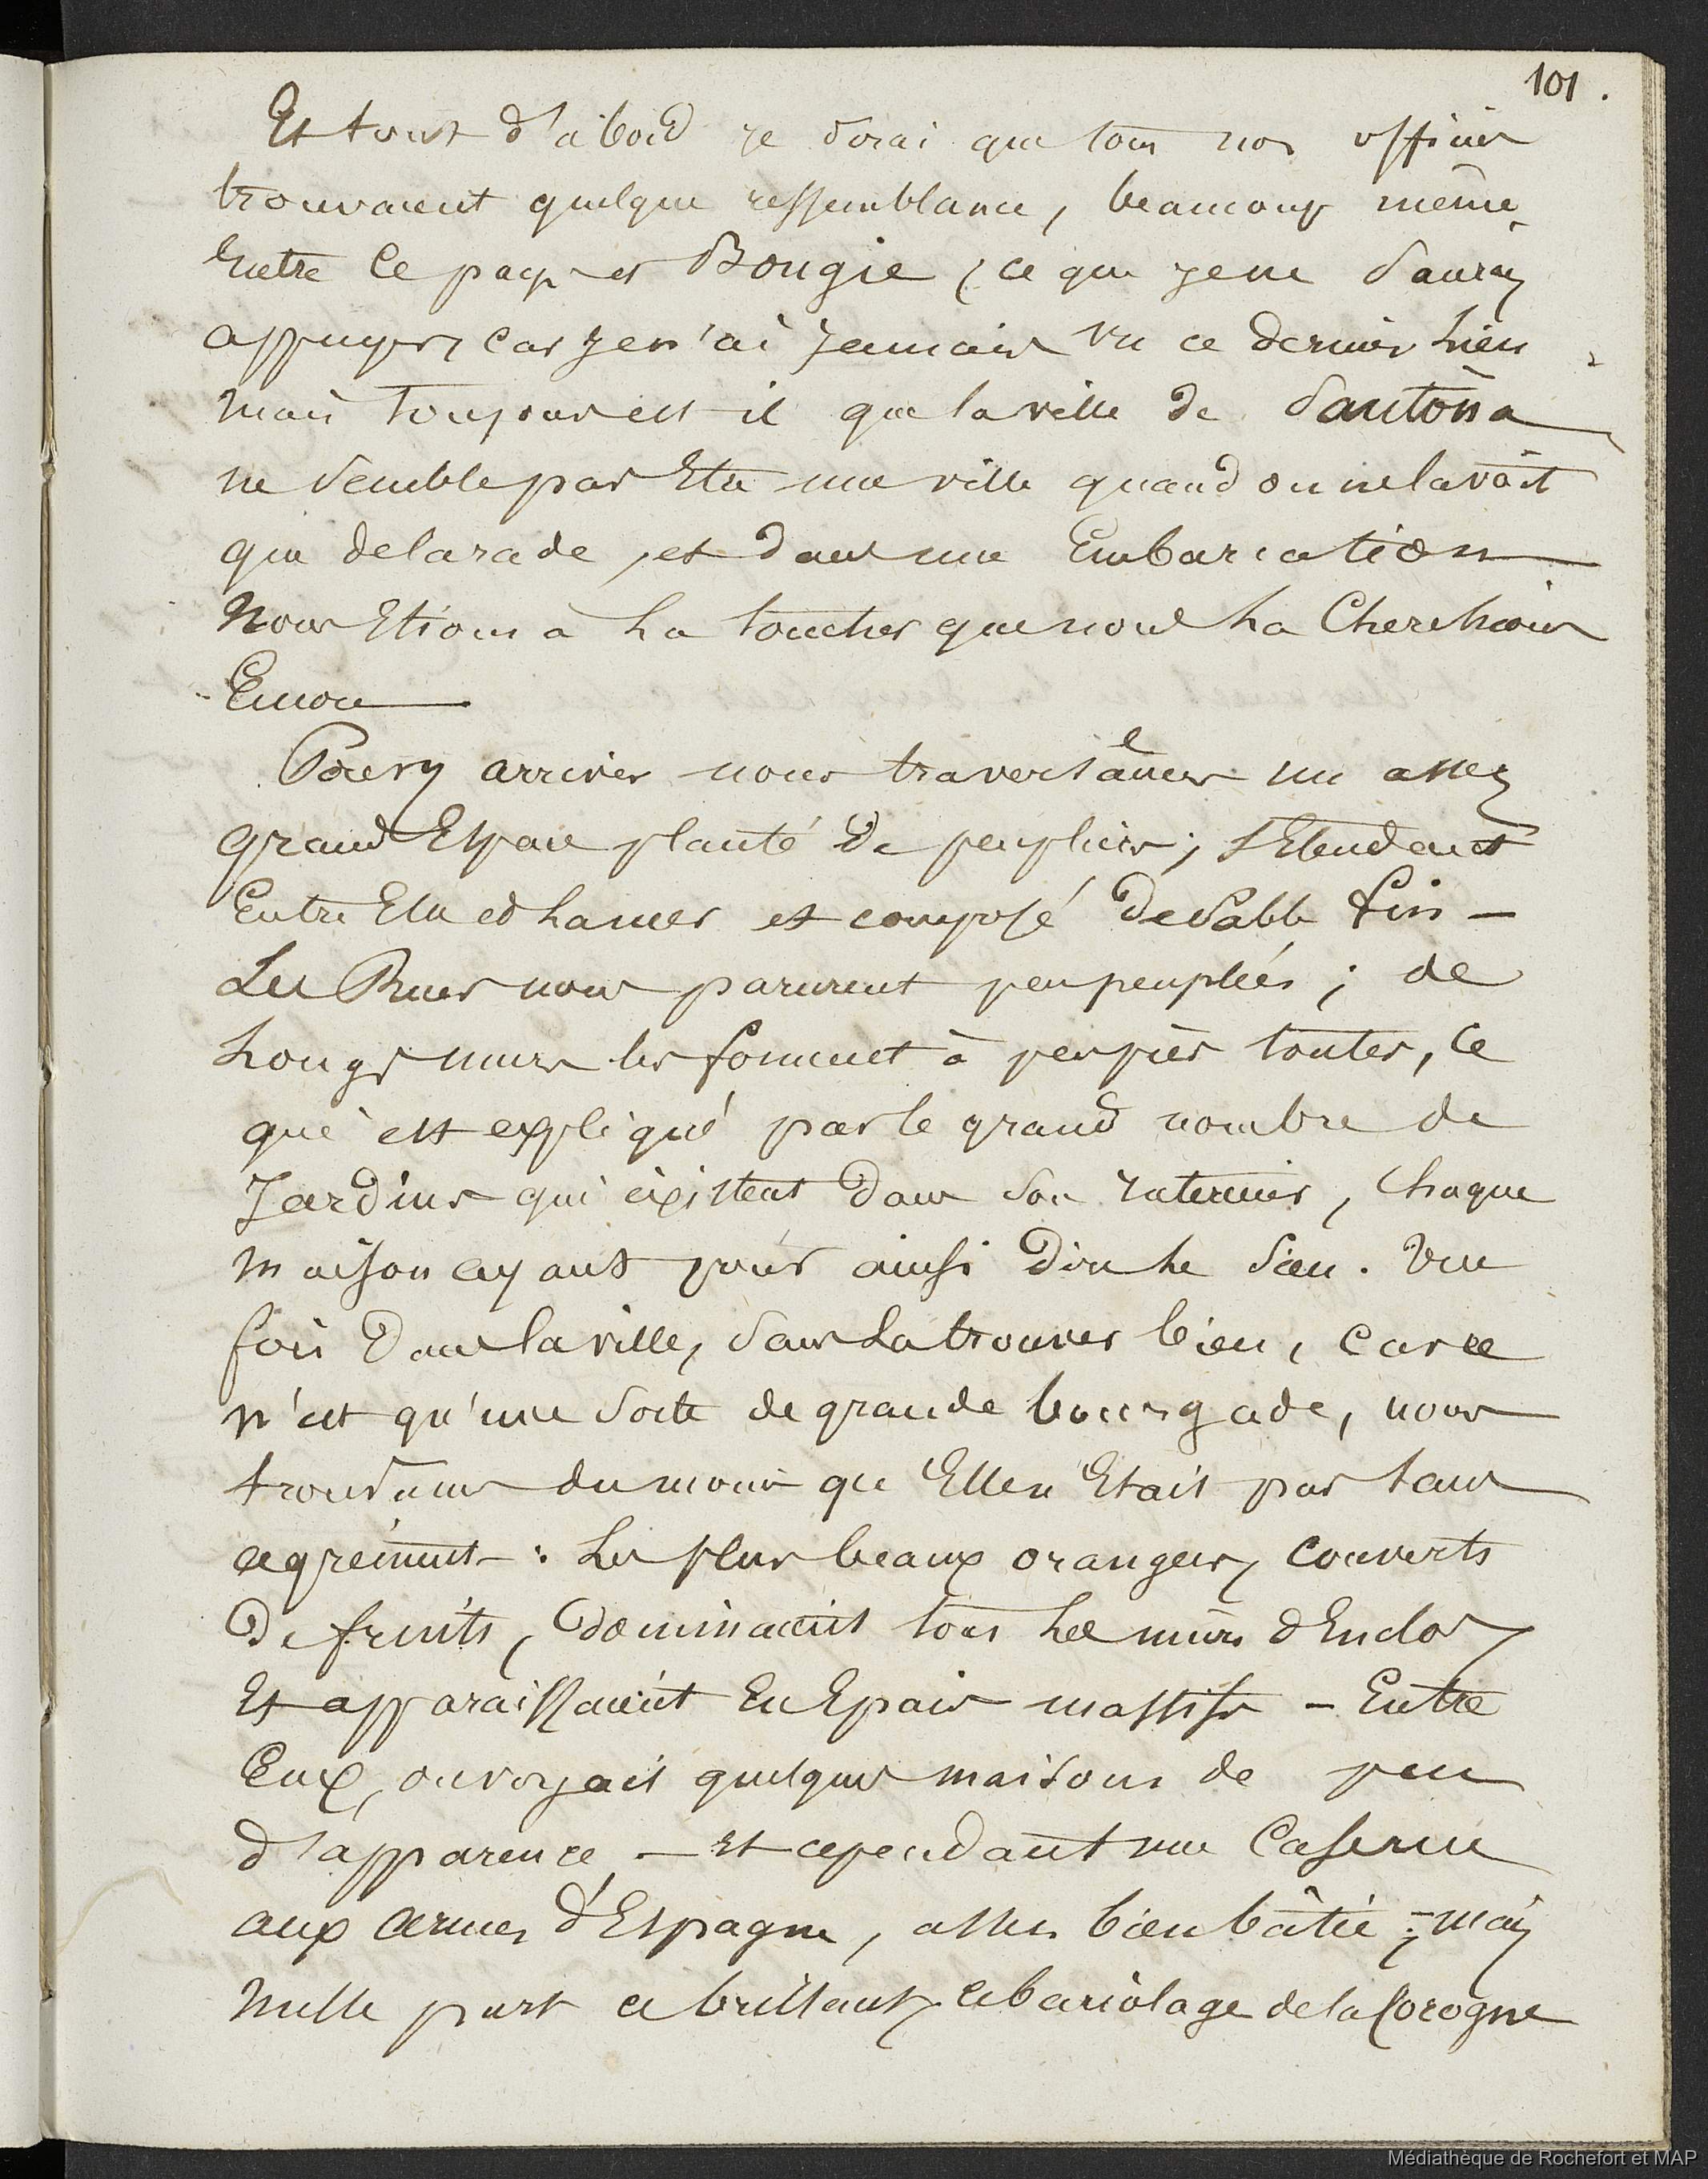 101.
Et tout d'abord je dirai que tous nos officiers
trouvaient quelque ressemblance, beaucoup même,
Entre ce pays et Bougie, ce que je ne saurais
appuyer, car je n'ai jamais vu ce dernier lieu,
mais toujours est il que la ville de Santõna
ne semble pas Etre une ville quand on ne la voit
que de la rade, et dans une Embarcation
Nous Etions à la toucher que nous la Cherchions
Encore
Pour y arriver nous traversâmes un assez
grand Espace planté de peupliers; s'Etendant
Entre Elle et la mer et composé de sable fin -
Les Rues nous parurent peu peuplées; de
Longs murs les forment à peu près toutes, ce
qui est expliqué par le grand nombre de
Jardins qui existent dans son interieur, Chaque
maison ayant pour ainsi dire le sien. Une
fois dans la ville, sans la trouver bien, car ce
n'est qu'une sorte de grande bourgade, nous
trouvâmes du moins que Elle n'Etait pas sans
agrément: Les plus beaux orangers, couverts
de fruits, dominaient tous les murs d'Enclos,
Et apparaissaient En Epais massifs - Entre
Eux, on voyait quelques maisons de peu
d'apparence - Et cependant une Caserne
aux armes d'Espagne, assez bien bâtie; - mais
nulle part ce brillant, ce bariolage de la Corogne
Médiathèque de Rochefort et MAP